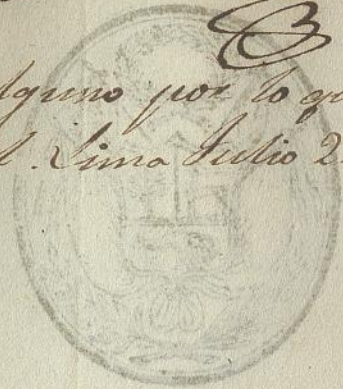 alguno por lo qu
l. Lima Julio 2